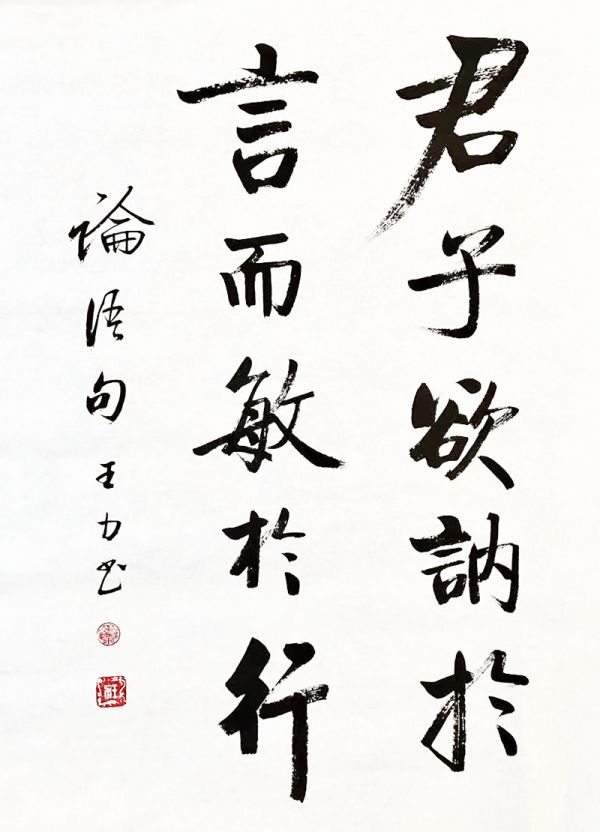 君子欲訥於
言而敏於行
論语句 王力书